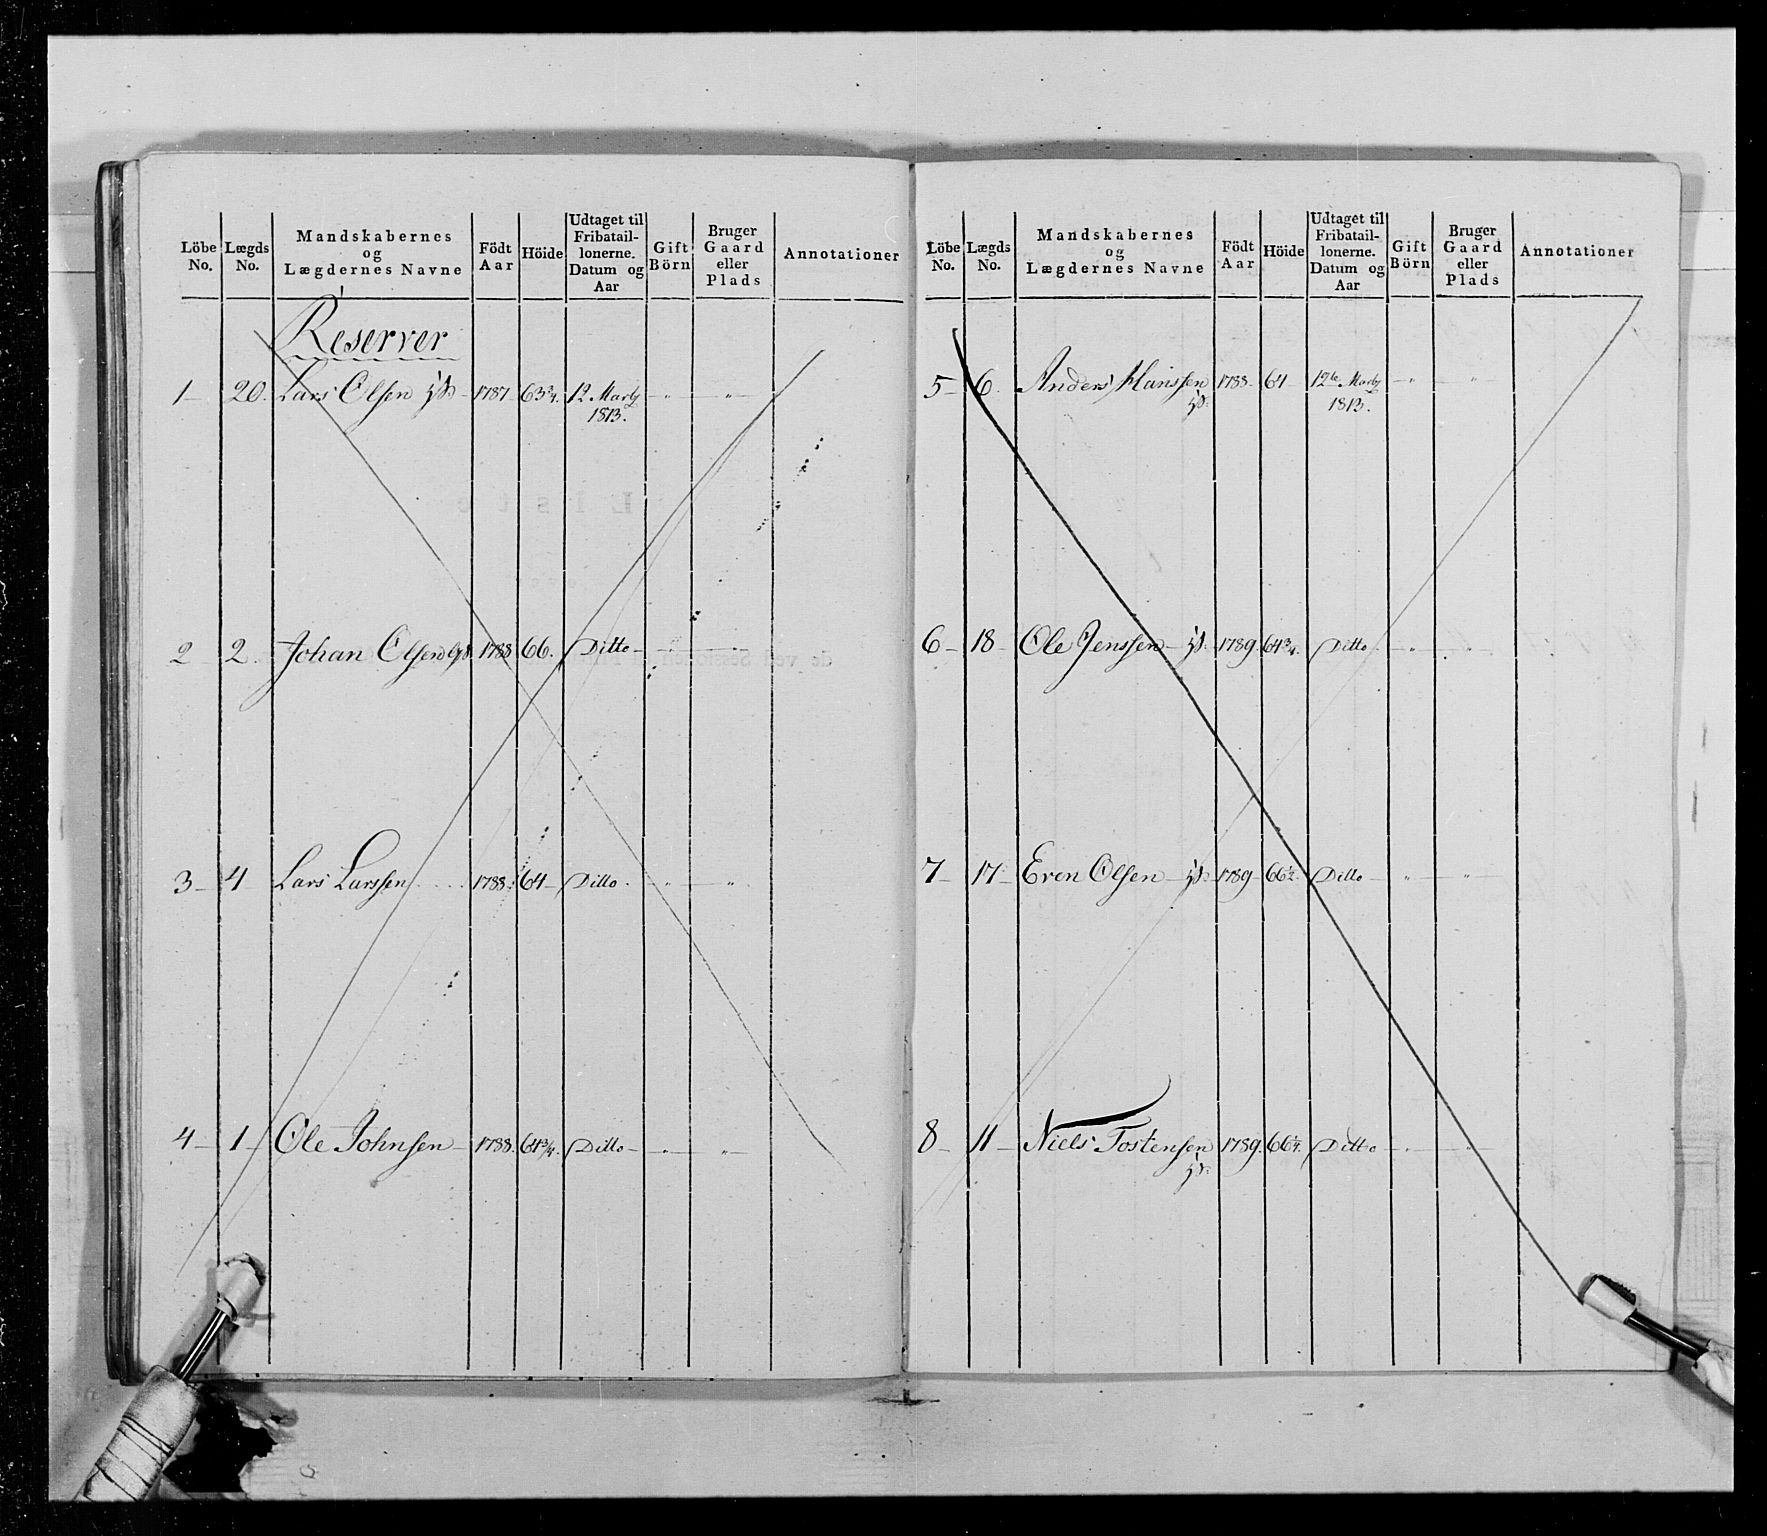 Löbe No. Lægds No. Mandskabernes og Lægdernes Navne Födt Aar Höide Udtaget til Fribatail-lonerne. Datum og Aar Gift Börn Bruger Gaard eller Plads Annotationer
Reserver
1 – 20. Lars Olsen – 1787. 63 3/4. 12 Marty – „ – „ –
1813.
2 – 2. Johan Olsen 1788 66. Ditto – „ – „ –
3 – 4 – Lars Larssen 1788. 64 – Ditto. „ – „
4 – 1 – Ole Johnsen – 1788. 64 3/4. Ditto – „ – „ –
Löbe No. Lægds No. Mandskabernes og Lægdernes Navne Födt Aar Höide Udtaget til Fribatail-lonerne. Datum og Aar Gift Börn Bruger Gaard eller Plads Annotationer
5 – 6. Anders Hanssen 1788 – 64 – 12te Marty – „ – „ –
1813.
6 – 18 – Ole Jenssen – 1789. 64 3/4. Ditto – „ – „ –
7 – 17 – Even Olsen – 1789 – 66 1/2. Ditto – „ – „ –
8 – 11 – Niels Tostensen 1789. 66 1/4. Ditto – „ – „ –